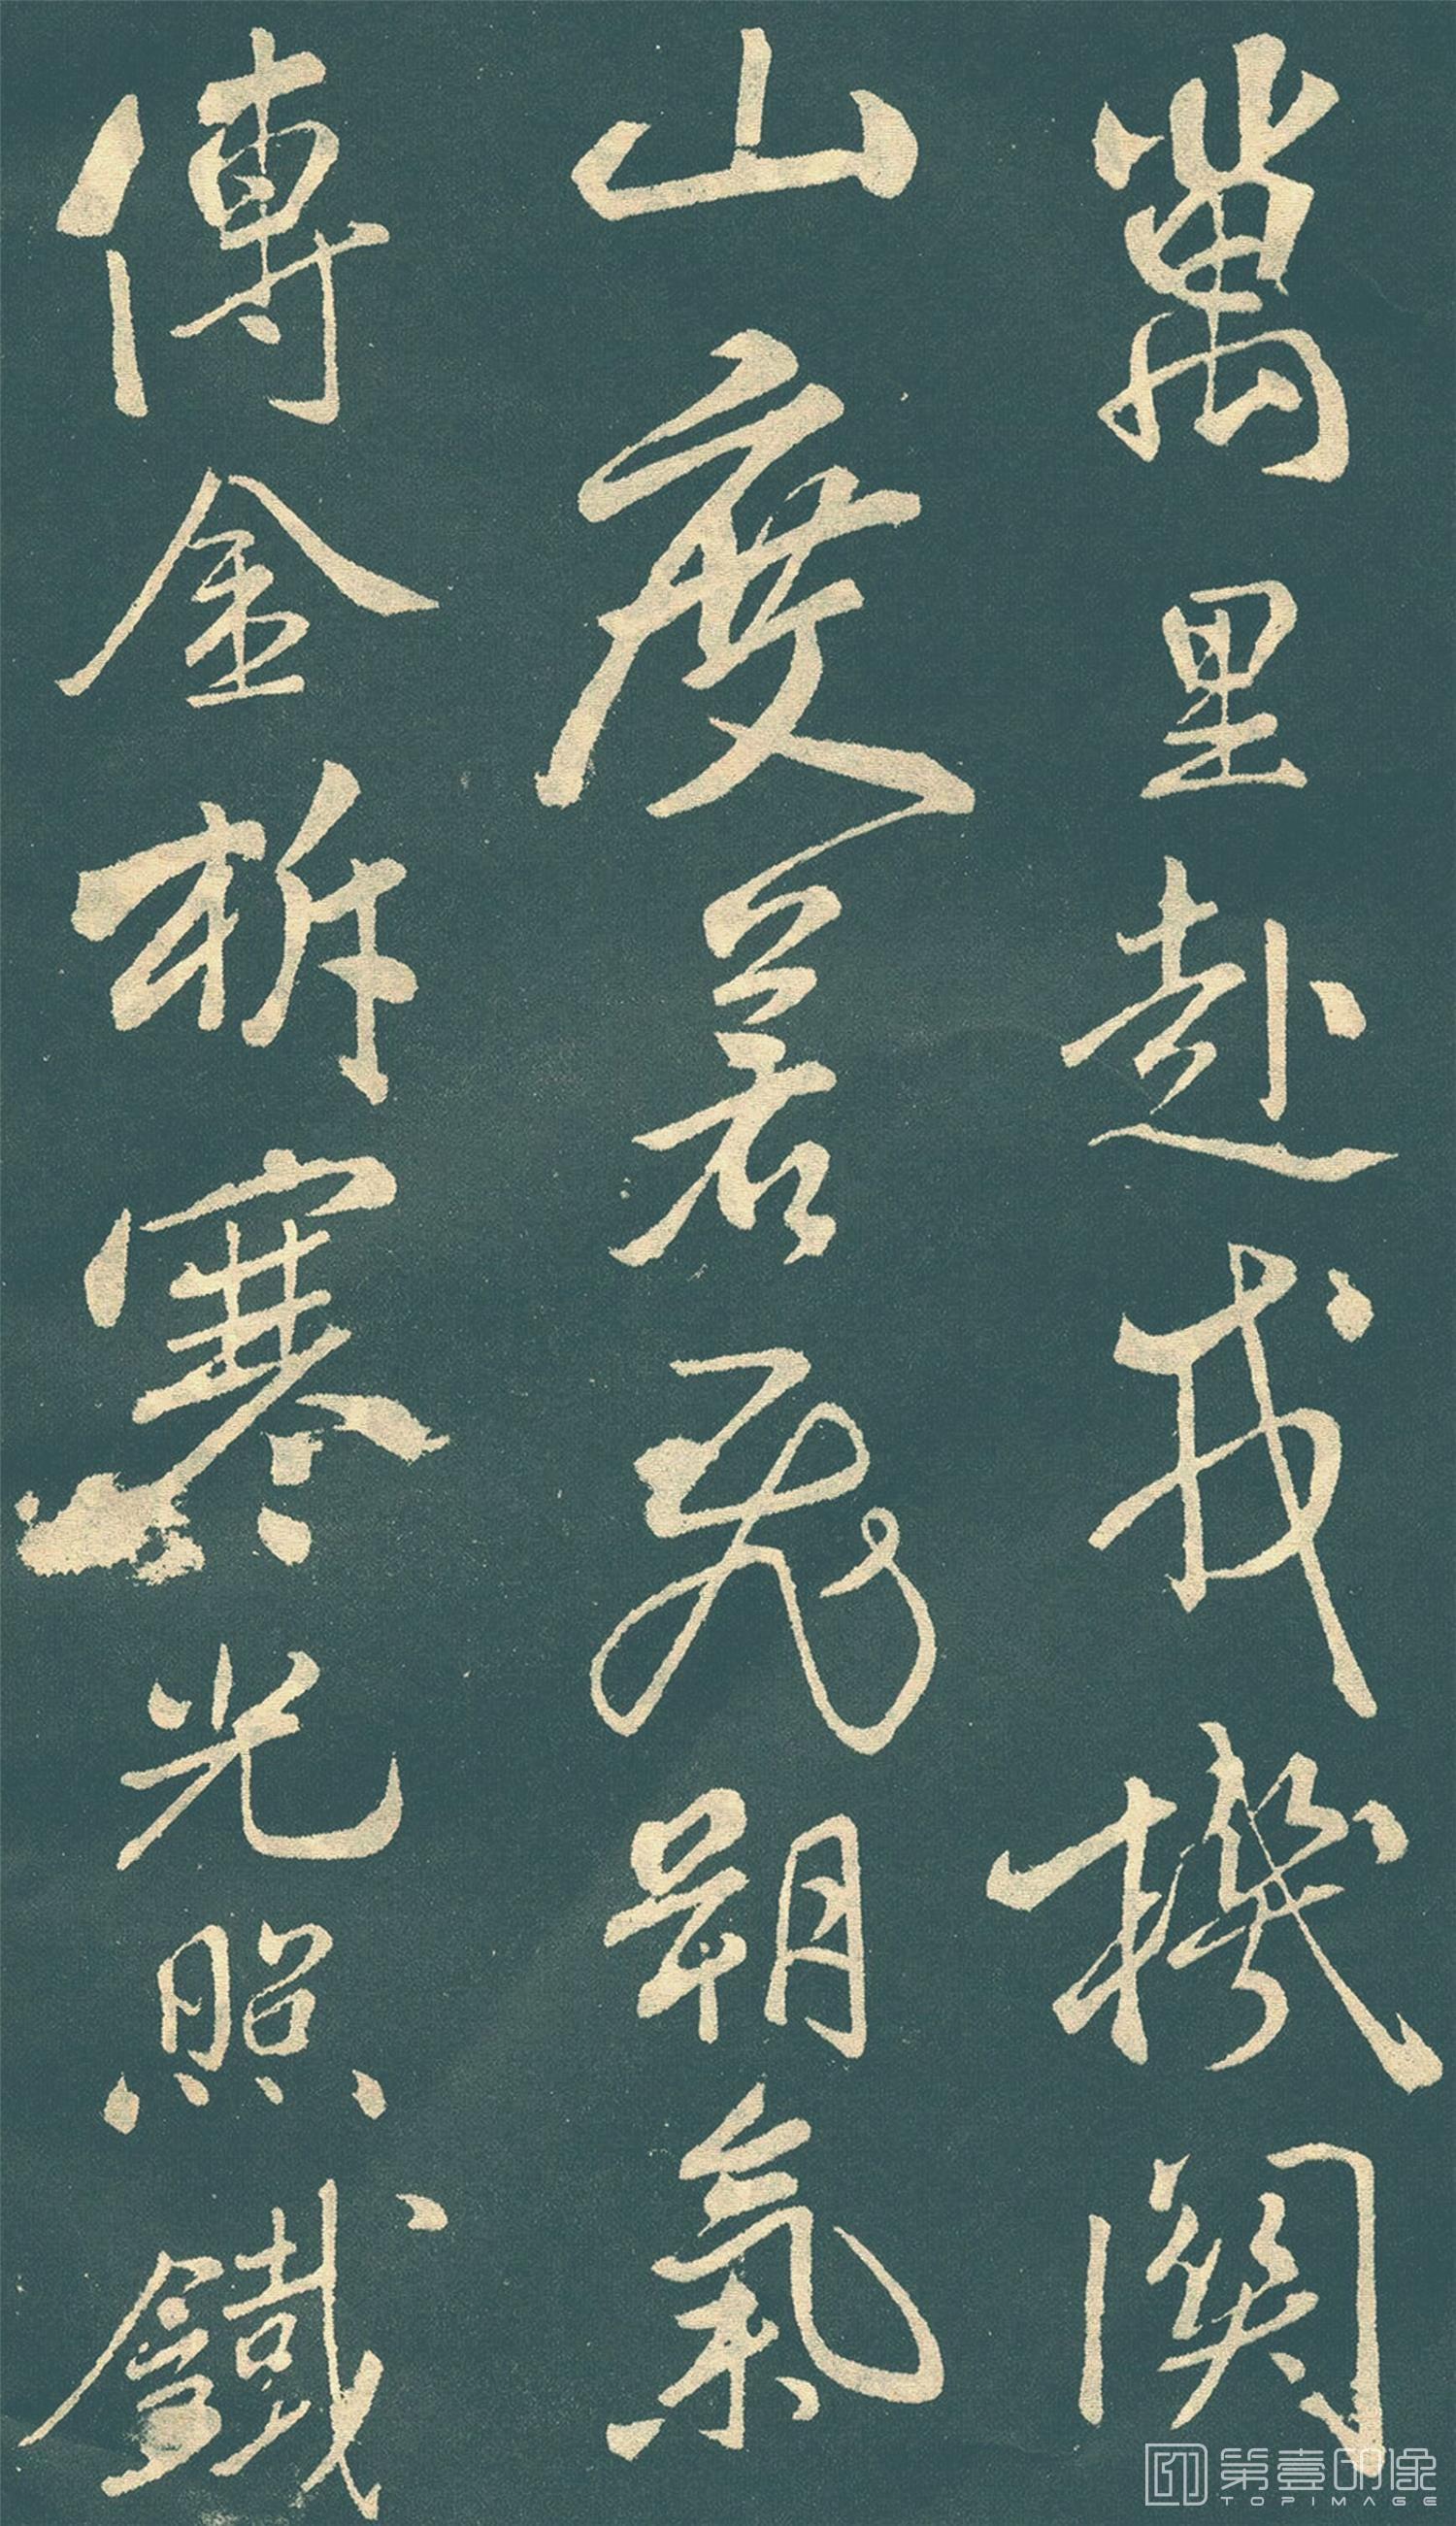 萬里赴戎機關
山度若飛朔氣
傳金柝寒光照鐵
第壹印像
TOPIMAGE